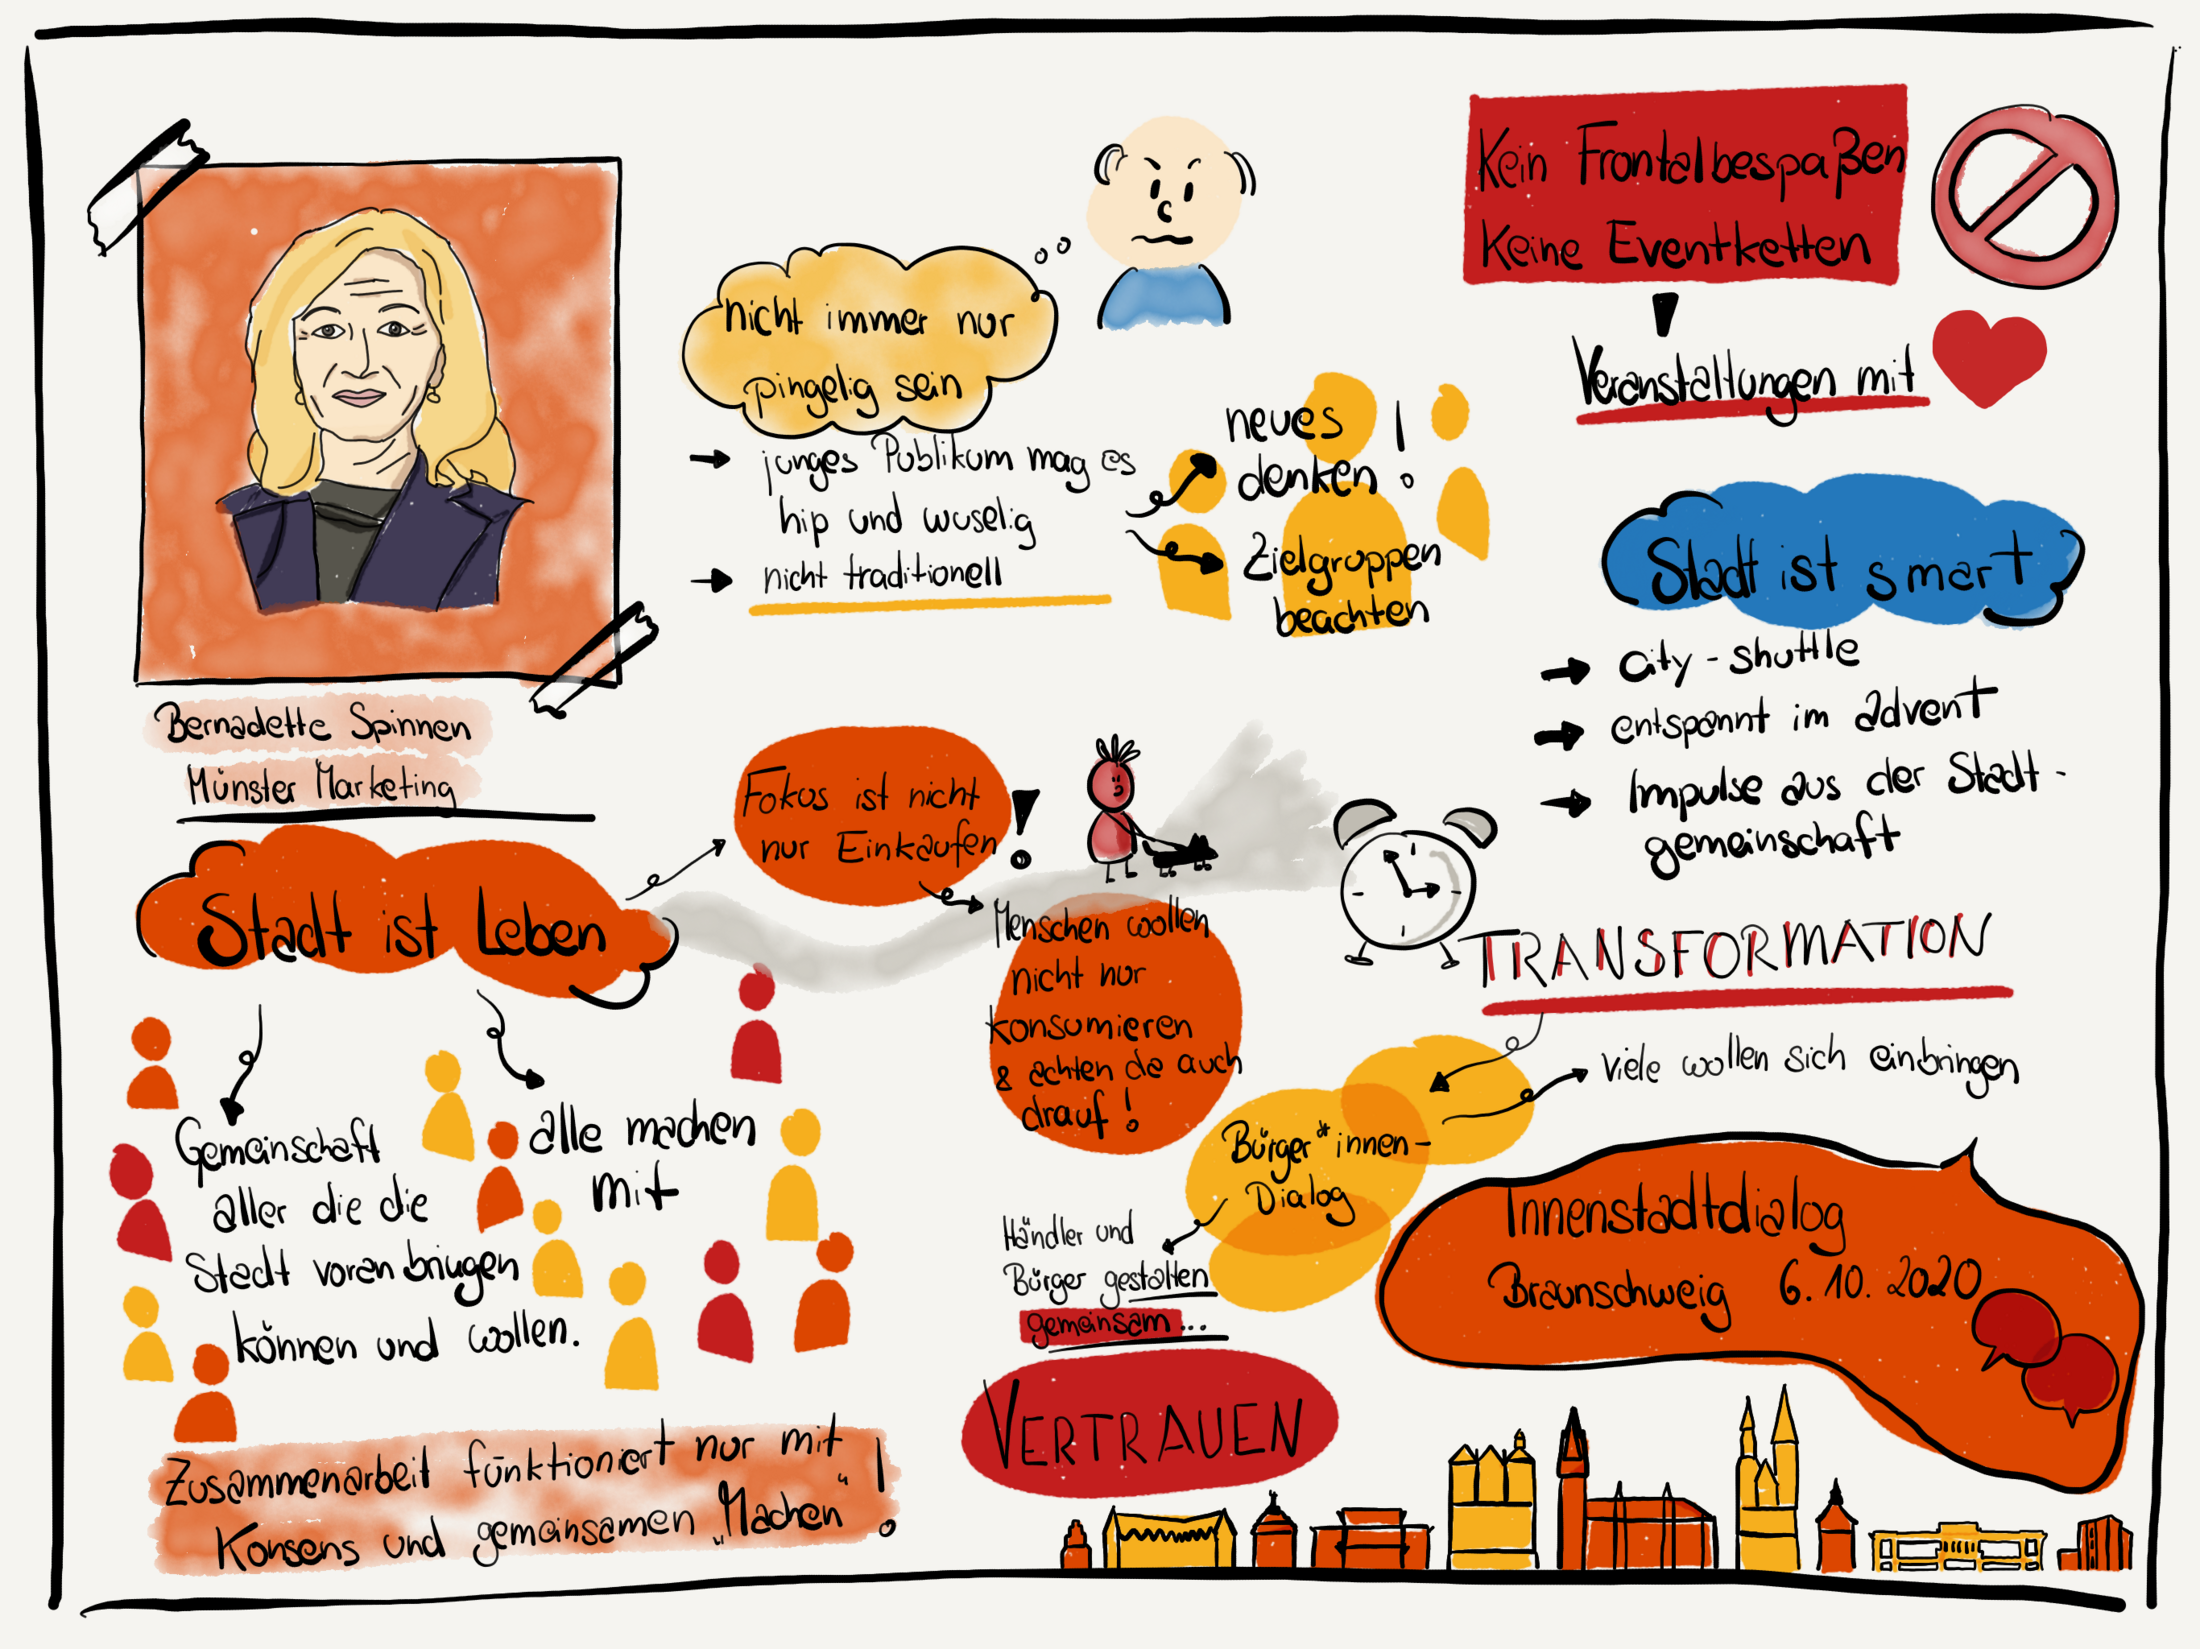 Bernadette Spinnen
Münster Marketing
nicht immer nur
pingelig sein
junges Publikum mag es
hip und wuselig
nicht traditionell
neues
denken !
Zielgruppen
beachten
Kein Frontalbespaßen
Keine Eventketten
Veranstaltungen mit
Stadt ist smart
city-shuttle
entspannt im advent
Impulse aus der Stadt-
gemeinschaft
Stadt ist Leben
Fokus ist nicht
nur Einkaufen !
Menschen wollen
nicht nur
konsumieren
& achten da auch
drauf !
Gemeinschaft
aller die die
Stadt voran bringen
können und wollen.
alle machen
mit
Zusammenarbeit funktioniert nur mit
Konsens und gemeinsamen „Machen“ !
TRANSFORMATION
viele wollen sich einbringen
Bürger*innen-
Dialog
Händler und
Bürger gestalten
gemeinsam...
VERTRAUEN
Innenstadtdialog
Braunschweig 6.10.2020